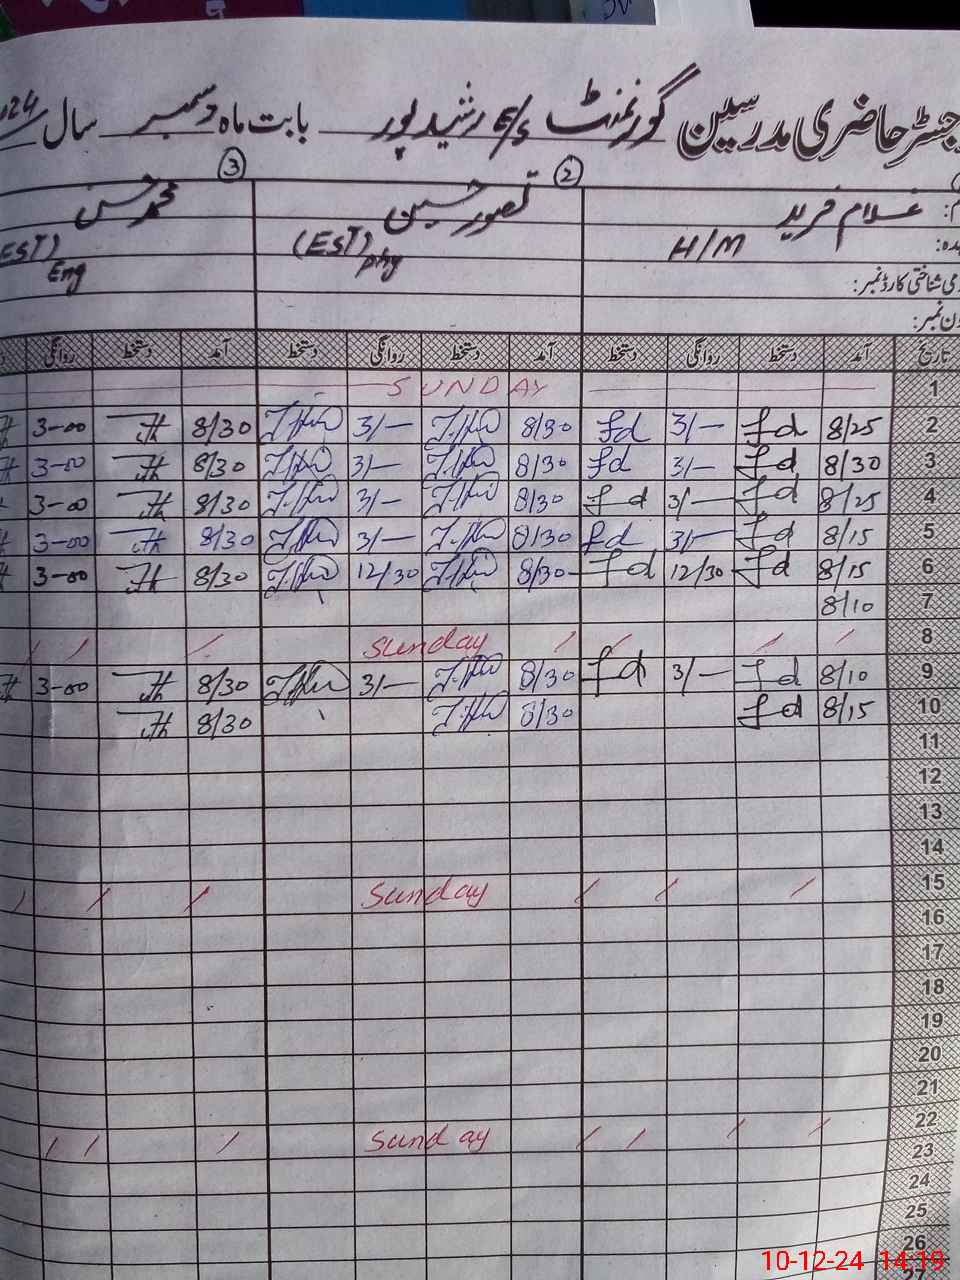 رجسٹر حاضری مدرسین گورنمنٹ E/S رشید پور بابت ماہ دسمبر سال 24
② ③
غلام فرید تصور حسین محمد حسن
H/M (EST) phy (EST) Eng
قومی شناختی کارڈ نمبر:
فون نمبر:
تاریخ آمد دستخط روانگی دستخط آمد دستخط روانگی دستخط آمد دستخط روانگی
1 SUNDAY
2 8/25 fd 3/- fd 8/30 3/- 8/30 3-00
3 8/30 fd 3/- fd 8/30 3/- 8/30 3-00
4 8/25 fd 3/- fd 8/30 3/- 8/30 3-00
5 8/15 fd 3/- fd 8/30 3/- 8/30 3-00
6 8/15 fd 12/30 fd 8/30 12/30 8/30 3-00
7 8/10
8 Sunday
9 8/10 fd 3/- fd 8/30 3/- 8/30 3-00
10 8/15 fd 8/30 8/30
11
12
13
14
15 Sunday
16
17
18
19
20
21
22 Sunday
23
24
25
26
27
10-12-24 14:19